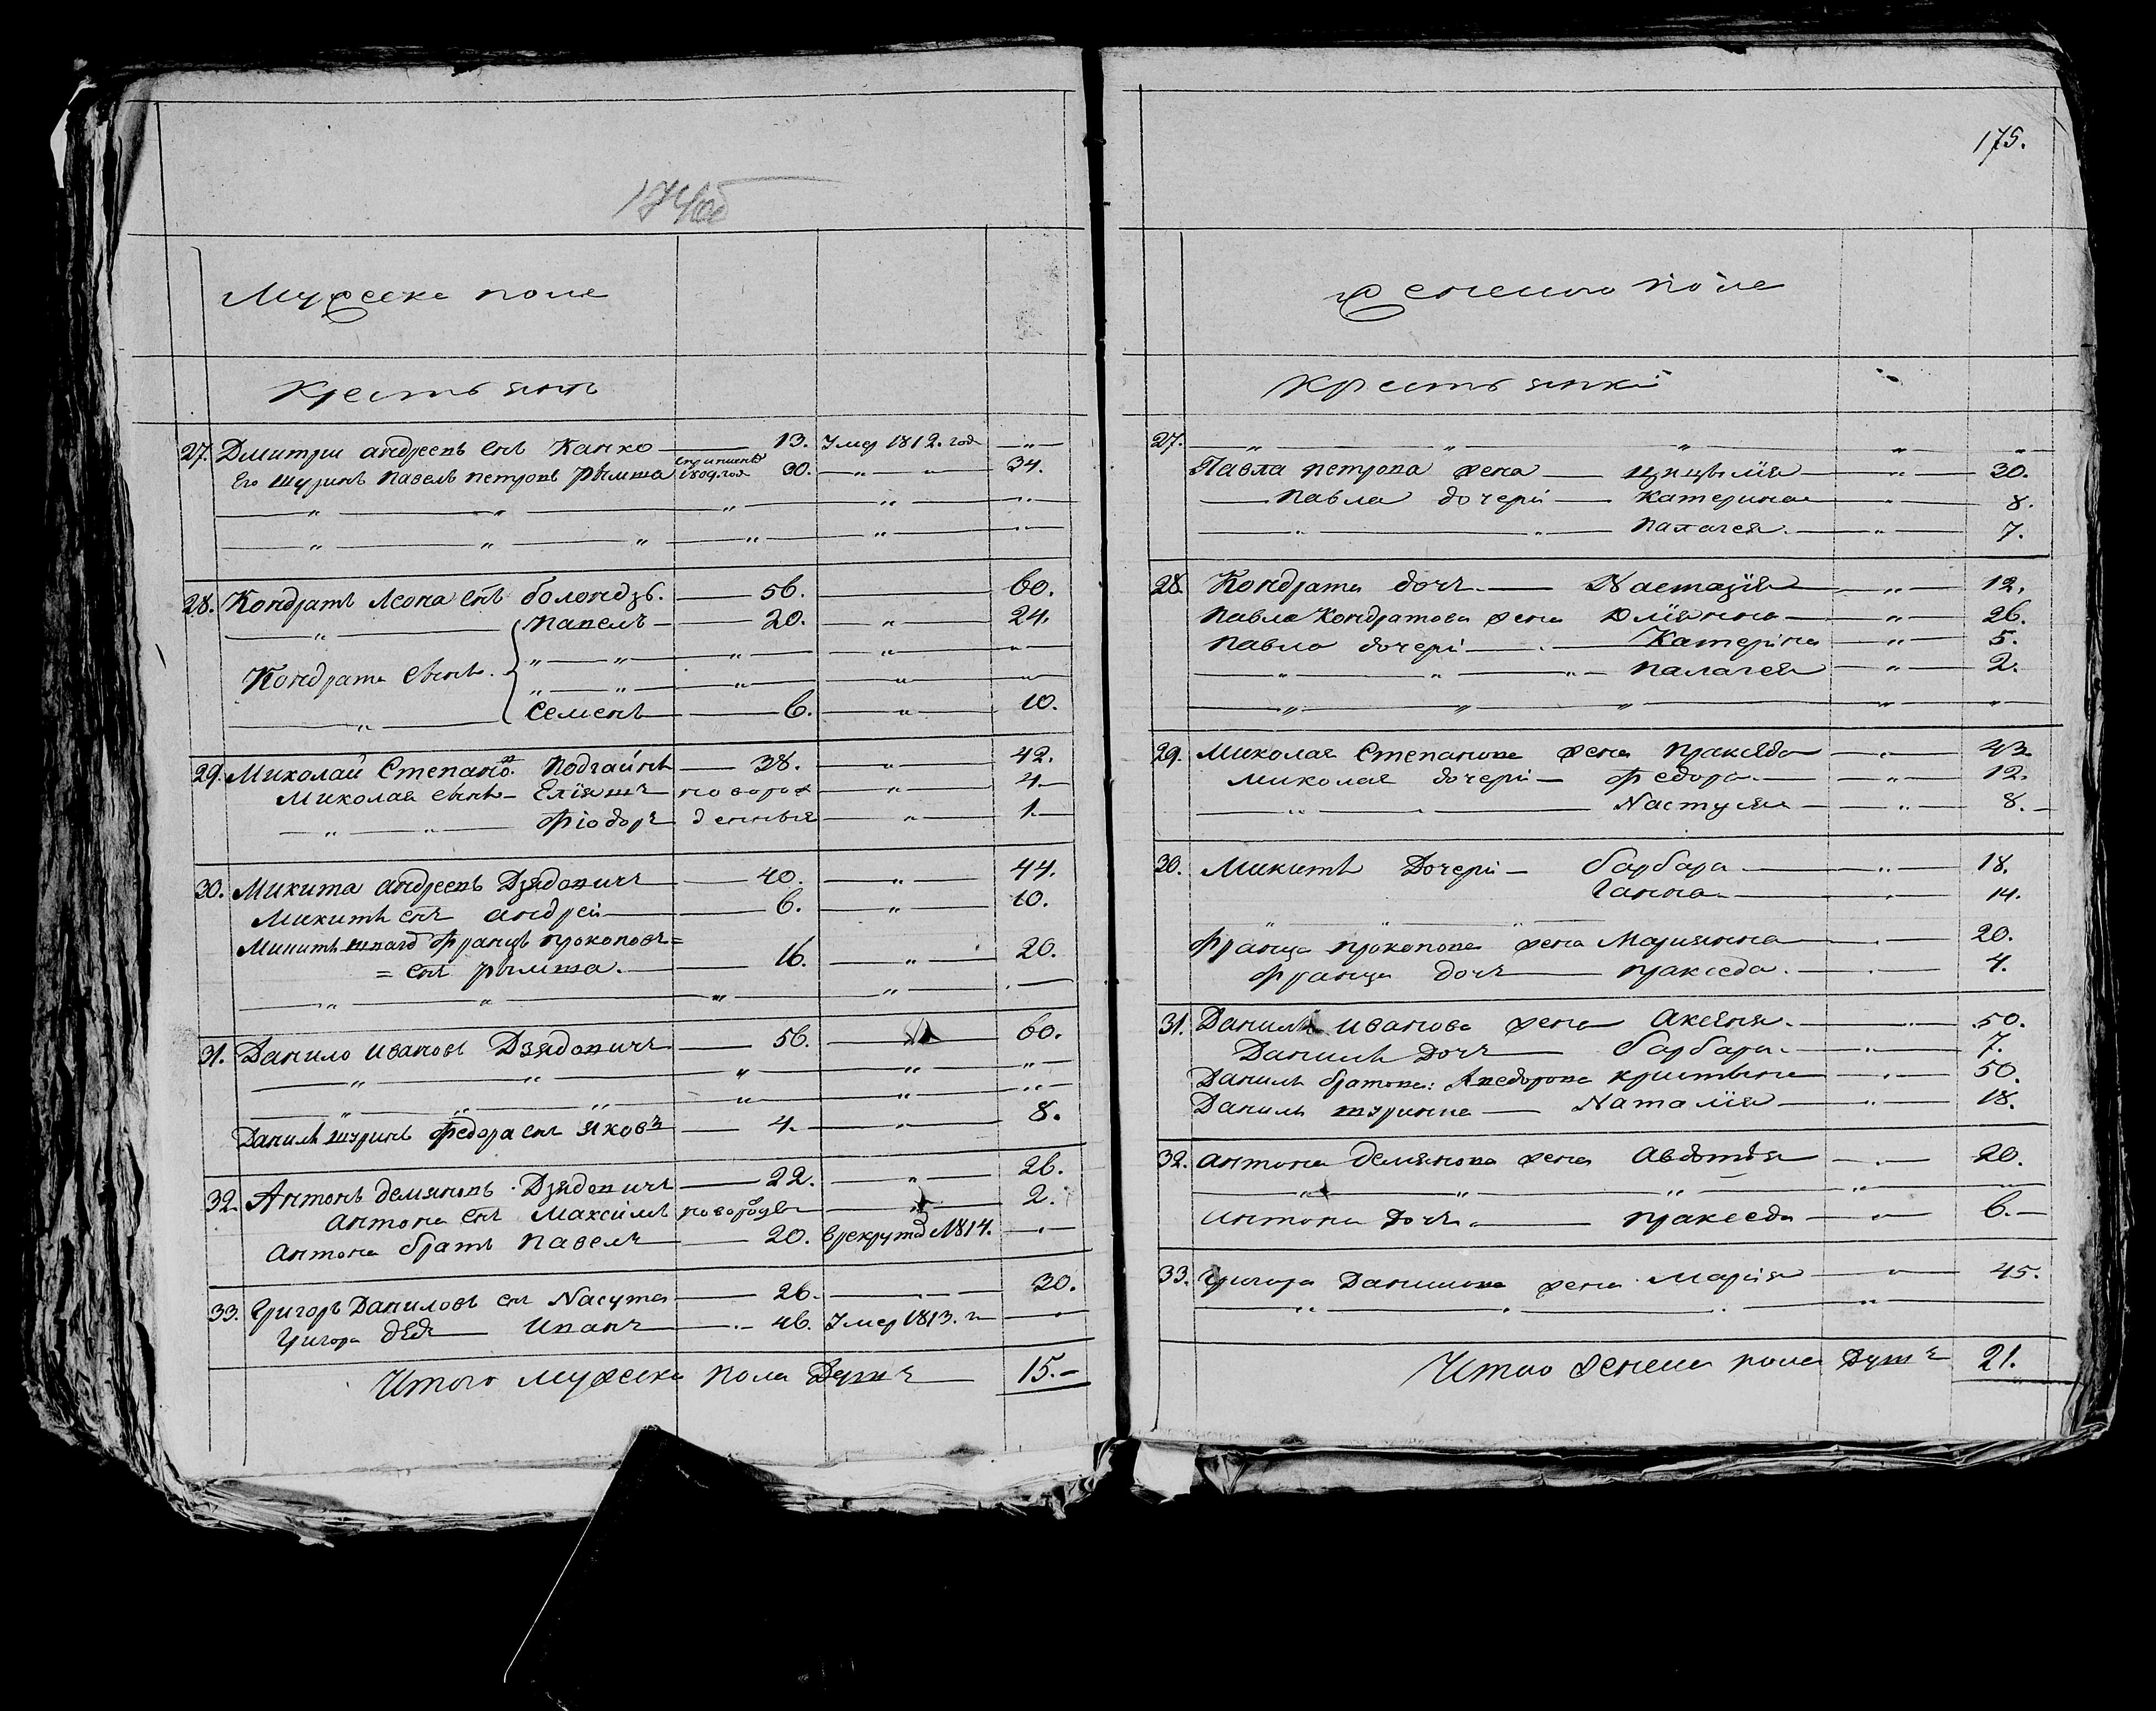 174об
Мужеска пола
Крестьянъ
27. Дмитри андреевъ снъ Канко 13. Умер 1812. год "
Его шуринъ павелъ петровъ рымша 1809. год 30. " 34.
28. Кондратъ Леона снъ болондзь. 56. 60.
" павелъ 20. " 24.
Кондрата сынъ.
" Семенъ 6. " 10.
29. Миколай Степано.в Подгайнъ 38. " 42.
Миколая сынъ Еліяшъ новорож " 4
" " Фіодоръ денныя " 1.
30. Микита андреевъ Дзядовичъ 40. " 44.
Микитѣ снъ андрей 6. " 10.
Микитѣ Францъ прокоповъ=
= снъ рымша. 16. " 20.
31. Данило Ивановъ Дзядовичъ 56. 60.
Данилѣ шуринъ Федора снъ яковъ 4. " 8.
32. Антонъ демяновъ Дзядовичъ 22. " 26.
Антона снъ Максимъ новорожде 2.
Антона братъ павелъ 20. в рекрута 1814.
33. Григоръ Даниловъ снъ Насута 26. 30.
Григора дядя Иванъ 46. Умер 1813. г
Итого мужеска пола Душъ 15.
175.
Женскаго поле
Крестьянкі
27. " " " " "
Павла петрова жена цыцылія " 30.
павла дочери Катерина " 8.
" " палагея. " 7.
28. Кондрата дочъ Настазія " 12.
павла Кондратова жена Юліянна " 26.
павла дочері Катеріна " 5.
" " " палагея " 2.
29. Миколая Степанова жена праксѣда " 43.
Миколая дочері Федора " 12.
Настуся " 8.
30. Микитѣ Дочери барбара 18.
Ганна 14.
Францa прокопова жена Марианна 20.
Франца дочъ пракседа. 4.
31. Данилѣ иванова жена Аксѣня. 50.
Данилѣ Дочъ барбара. 7.
Данилѣ братова: 50.
Данилѣ Наталія 18.
32. Антона Демянова жена Авдотья 20.
Антона Дочъ пракседа 6.
33. Григора Данилова жена Марія 45.
Итого женска пола Душъ 21.